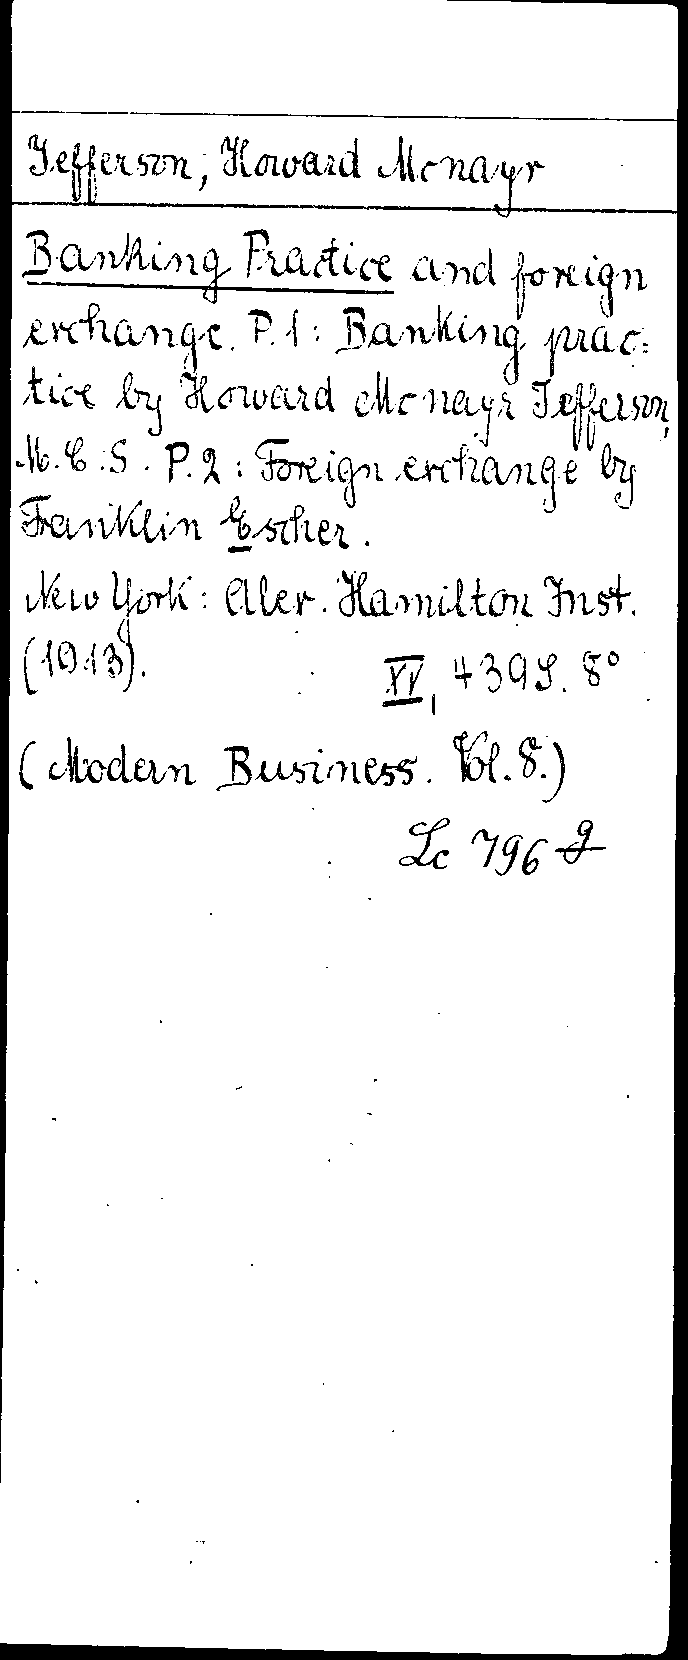 Jefferson, Howard Mcnayr
Banking Practice and foreign
exchange. P. 1: Banking prac=
tice by Howard Mcnayr Jefferson,
M. C. S. P. 2: Foreign exchange by
Franklin Escher.
New York: Alex. Hamilton Inst.
(1913). XV, 439 S. 8°
(Modern Business. Vol. 8.)
Lc 796 g